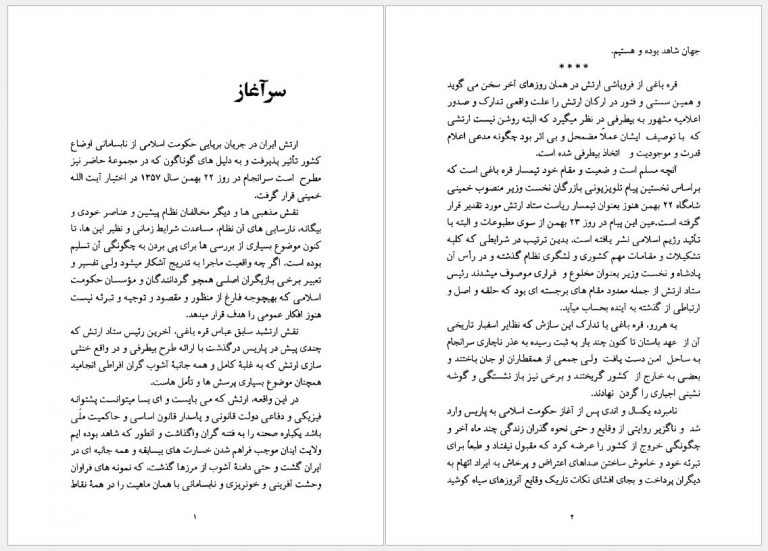 سرآغاز
ارتش ایران در جریان برپایی حکومت اسلامی از نابسامانی اوضاع
کشور تأثیر پذیرفت و به دلیل های گوناگون که در مجموعۀ حاضر نیز
مطرح است سرانجام در روز ۲۲ بهمن سال ۱۳۵۷ در اختیار آیت الله
خمینی قرار گرفت.
نقش مذهبی ها و دیگر مخالفان نظام پیشین و عناصر خودی و
بیگانه، نارسایی های آن نظام، مساعدت شرایط زمانی و نظیر این ها، تا
کنون موضوع بسیاری از بررسی ها برای پی بردن به چگونگی آن تسلیم
بوده است. اگر چه واقعیت ماجرا به تدریج آشکار میشود ولی تفسیر و
تعبیر برخی بازیگران اصلی همچو گردانندگان و مؤسسان حکومت
اسلامی که بهیچوجه فارغ از منظور و مقصود و توجیه و تبرئه نیست
هنوز افکار عمومی را هدف قرار میدهد.
نقش ارتشبد سابق عباس قره باغی، آخرین رئیس ستاد ارتش که
چندی پیش در پاریس درگذشت با ارائه طرح بیطرفی و در واقع خنثی
سازی ارتش که به غلبۀ کامل و همه جانبۀ آشوب گران افراطی انجامید
همچنان موضوع بسیاری پرسش ها و تأمل هاست.
در این واقعه، ارتش که می بایست و ای بسا میتوانست پشتوانه
فیزیکی و دفاعی دولت قانونی و پاسدار قانون اساسی و حاکمیت ملّی
باشد یکباره صحنه را به فتنه گران واگذاشت و آنطور که شاهد بوده ایم
ولایت اینان موجب فراهم شدن خسارت های بیسابقه و همه جانبه ای در
ایران گشت و حتی دامنۀ آشوب از مرزها گذشت، که نمونه های فراوان
وحشت آفرینی و خونریزی و نابسامانی با همان ماهیت را در همۀ نقاط
۱
جهان شاهد بوده و هستیم.
****
قره باغی از فروپاشی ارتش در همان روزهای آخر سخن می گوید
و همین سستی و فتور در ارکان ارتش را علت واقعی تدارک و صدور
اعلامیه مشهور به بیطرفی در نظر میگیرد که البته روشن نیست ارتشی
که با توصیف ایشان عملاً مضمحل و بی اثر بود چگونه مدعی اعلام
قدرت و موجودیت و اتخاذ بیطرفی شده است.
آنچه مسلم است و ضعیت و مقام خود تیمسار قره باغی است که
براساس نخستین پیام تلویزیونی بازرگان نخست وزیر منصوب خمینی
شامگاه ۲۲ بهمن هنوز بعنوان تیمسار ریاست ستاد ارتش مورد تقدیر قرار
گرفته است.عین این پیام در روز ۲۳ بهمن از سوی مطبوعات و البته با
تأئید رژیم اسلامی نشر یافته است. بدین ترتیب در شرایطی که کلیه
تشکیلات و مقامات مهم کشوری و لشگری نظام گذشته و در رأس آن
پادشاه و نخست وزیر بعنوان مخلوع و فراری موصوف میشدند رئیس
ستاد ارتش از جمله معدود مقام های برجسته ای بود که حلقه و اصل و
ارتباطی از گذشته به آینده بحساب میآید.
به هررو، قره باغی با تدارک این سازش که نظایر اسفبار تاریخی
آن از عهد باستان تا کنون چند بار به ثبت رسیده به عذر ناچاری سرانجام
به ساحل امن دست یافت ولی جمعی از همقطاران او جان باختند و
بعضی به خارج از کشور گریختند و برخی نیز باز نشستگی و گوشه
نشینی اجباری را گردن نهادند.
نامبرده یکسال و اندی پس از آغاز حکومت اسلامی به پاریس وارد
شد و ناگزیر روایتی از وقایع و حتی نحوه گذران زندگی چند ماه آخر و
چگونگی خروج از کشور را عرضه کرد که مقبول نیفتاد و طبعاً برای
تبرئه خود و خاموش ساختن صداهای اعتراض و پرخاش به ایراد اتهام به
دیگران پرداخت و بجای افشای نکات تاریک وقایع آنروزهای سیاه کوشید
۲